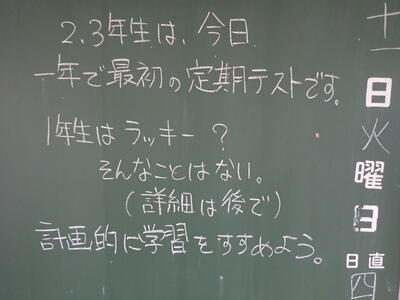 2.3年生は、今日
一年で最初の定期テストです。
1年生はラッキー?
そんなことはない。
(詳細は後で)
計画的に学習をすすめよう。
十一
日
火
曜
日
日直
四